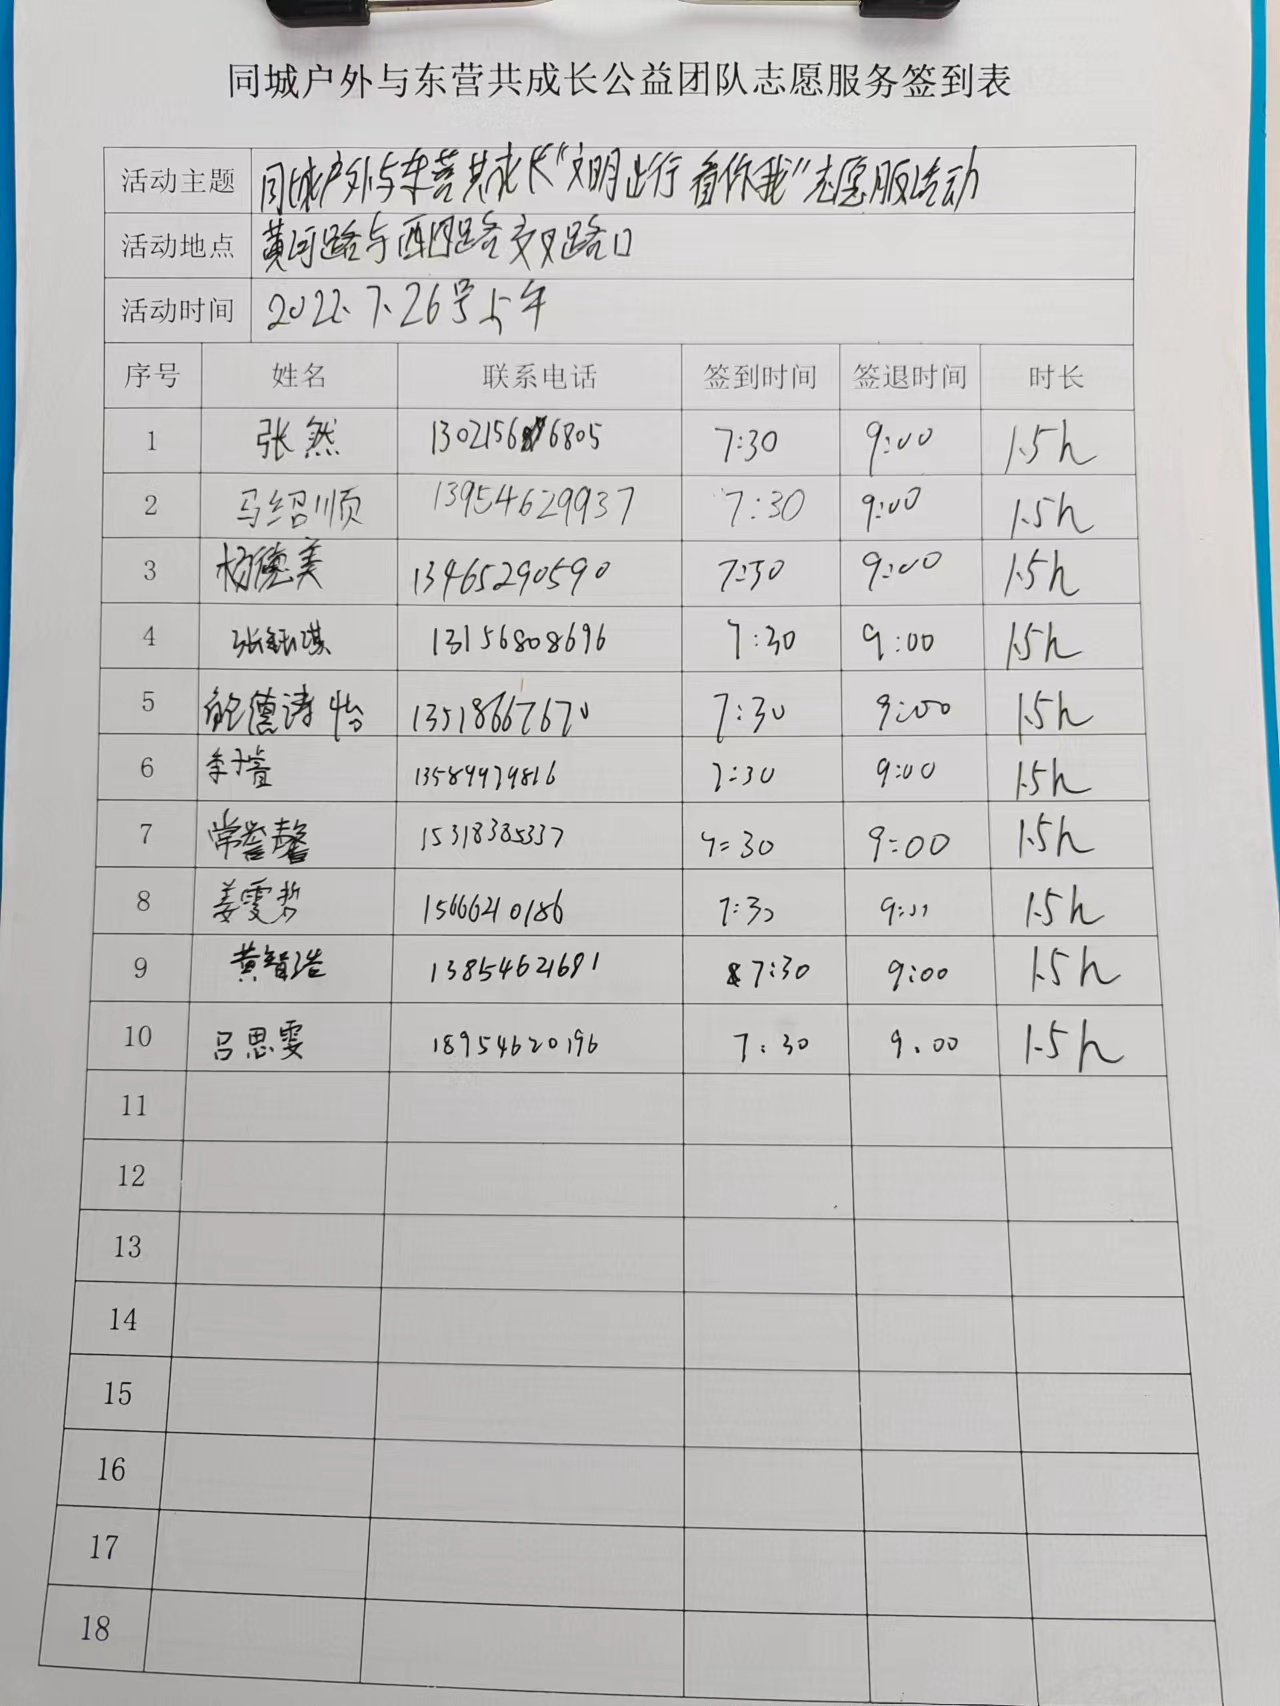 同城户外与东营共成长公益团队志愿服务签到表
活动主题 同城户外与东营共成长“文明出行 看你我”志愿服活动
活动地点 黄河路与西四路交叉路口
活动时间 2022.7.26号上午
序号 姓名 联系电话 签到时间 签退时间 时长
1 张然 13021566805 7:30 9:00 1.5h
2 马绍顺 13954629937 7:30 9:00 1.5h
3 杨德美 13465290590 7:30 9:00 1.5h
4 张钰琪 13156808696 7:30 9:00 1.5h
5 德涛 怡 13518667670 7:30 9:00 1.5h
6 李子萱 7:30 9:00 1.5h
7 常誉馨 15318385337 7:30 9:00 1.5h
8 姜雯哲 15666210186 7:30 9:00 1.5h
9 黄智浩 13854621691 7:30 9:00 1.5h
10 吕思雯 18954620196 7:30 9.00 1.5h
11
12
13
14
15
16
17
18